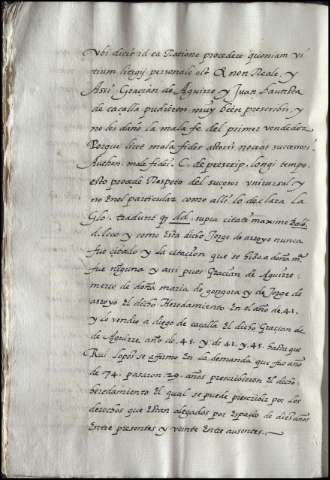 Ubi dicit id ea Ratione procedere quoniam vi
tium litigij personale est & non Reale, y
Assi Graçian de Aguirre y Juan bautista
de caçalla pudieron muy bien prescrebir, y
no les daño la mala fe del primer vendedor
Porque licet mala fides alterius noceat sucesori
Authen. male fidei. C. de prescrip. longi tempo
esto procede Respeto del sucesor universal y
no En el particular como alli lo declara la
Glo. tradunt DD. supra citati maxime Bald.
d. loco y como Esta dicho Jorge de arroyo nunca
fue citado y la citaçion que se hizo a doña mª
fue ninguna y assi pues Graçian de Aguirre
merco de doña maria de gongora y de Jorge de
arroyo El dicho Heredamiento En el año de 41.
y lo vendio a diego de caçalla El dicho Graçian de
de Aguirre, año de 45. y de 41. y 45. hasta que
Rui lopes se affirmo En la demanda que fue año
de 74. pasaron 29. años prescribieron El dicho
heredamiento El qual se puede prescrebir por los
derechos que Estan alegados por Espacio de diez años
Entre presentes y veinte Entre ausentes.